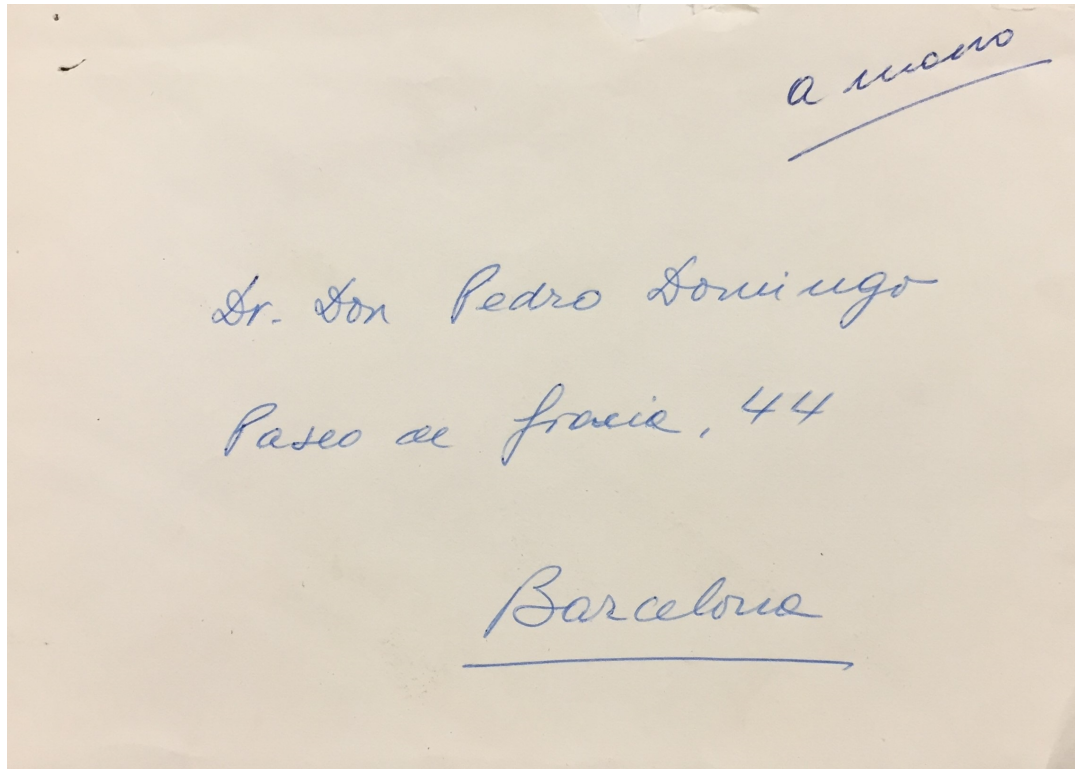 a mano
Dr. Don Pedro Domingo
Paseo de Gracia, 44
Barcelona